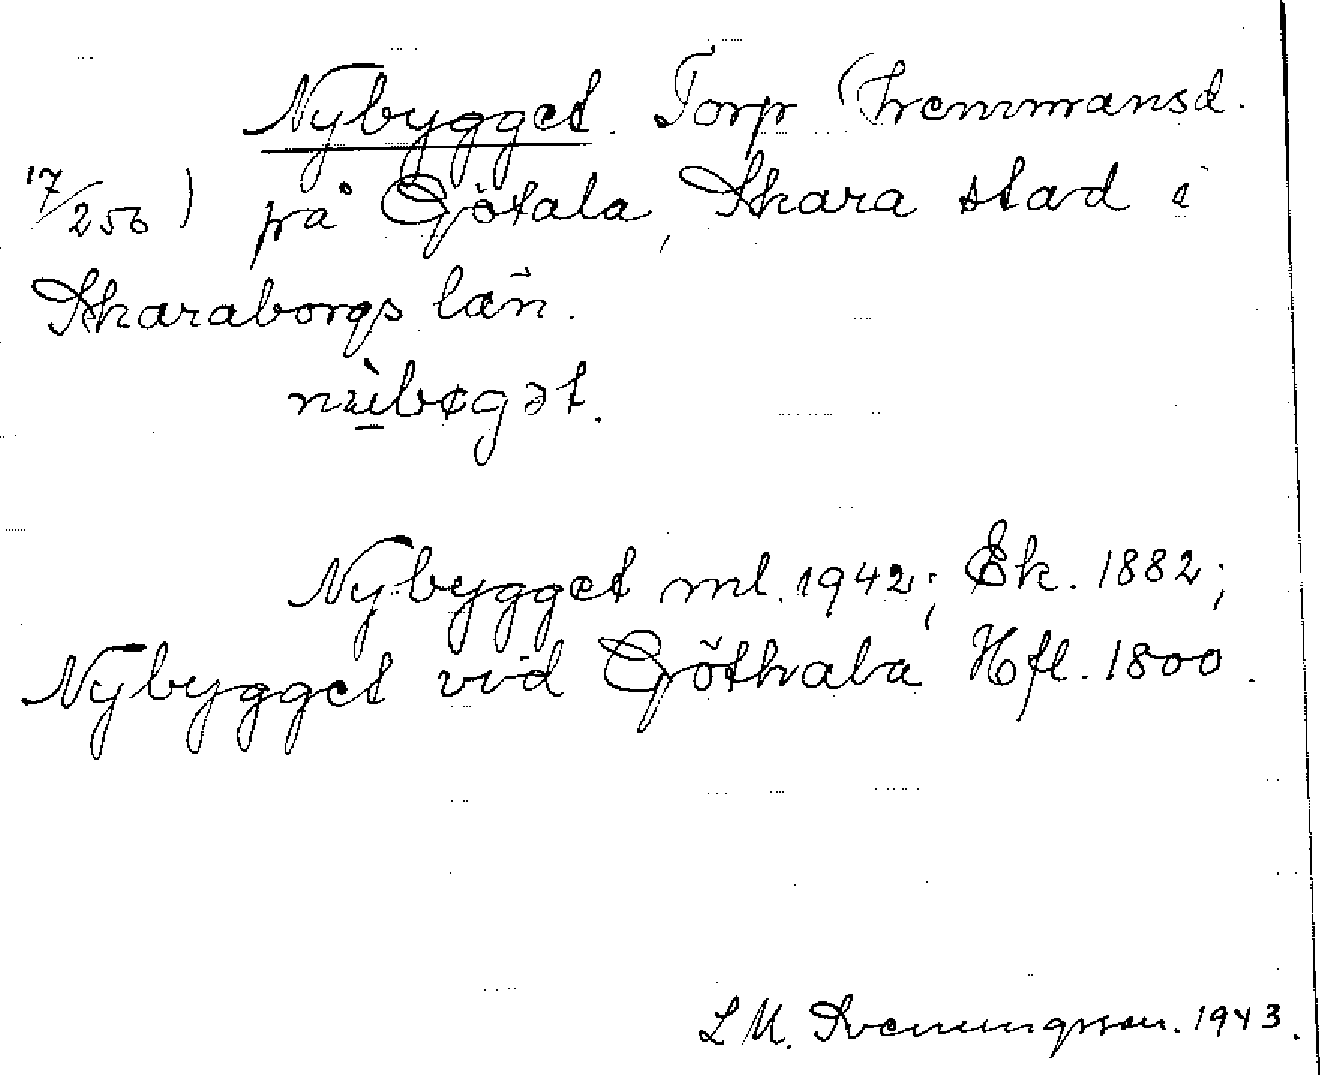 Nybygget. Torp (hemmansd.
17/256) på Götala, Skara stad i
Skaraborgs län.
Nybygget ml. 1942; Ek. 1882;
Nybygget vid Göthala Hfl. 1800.
L M. Svenungsson. 1943.